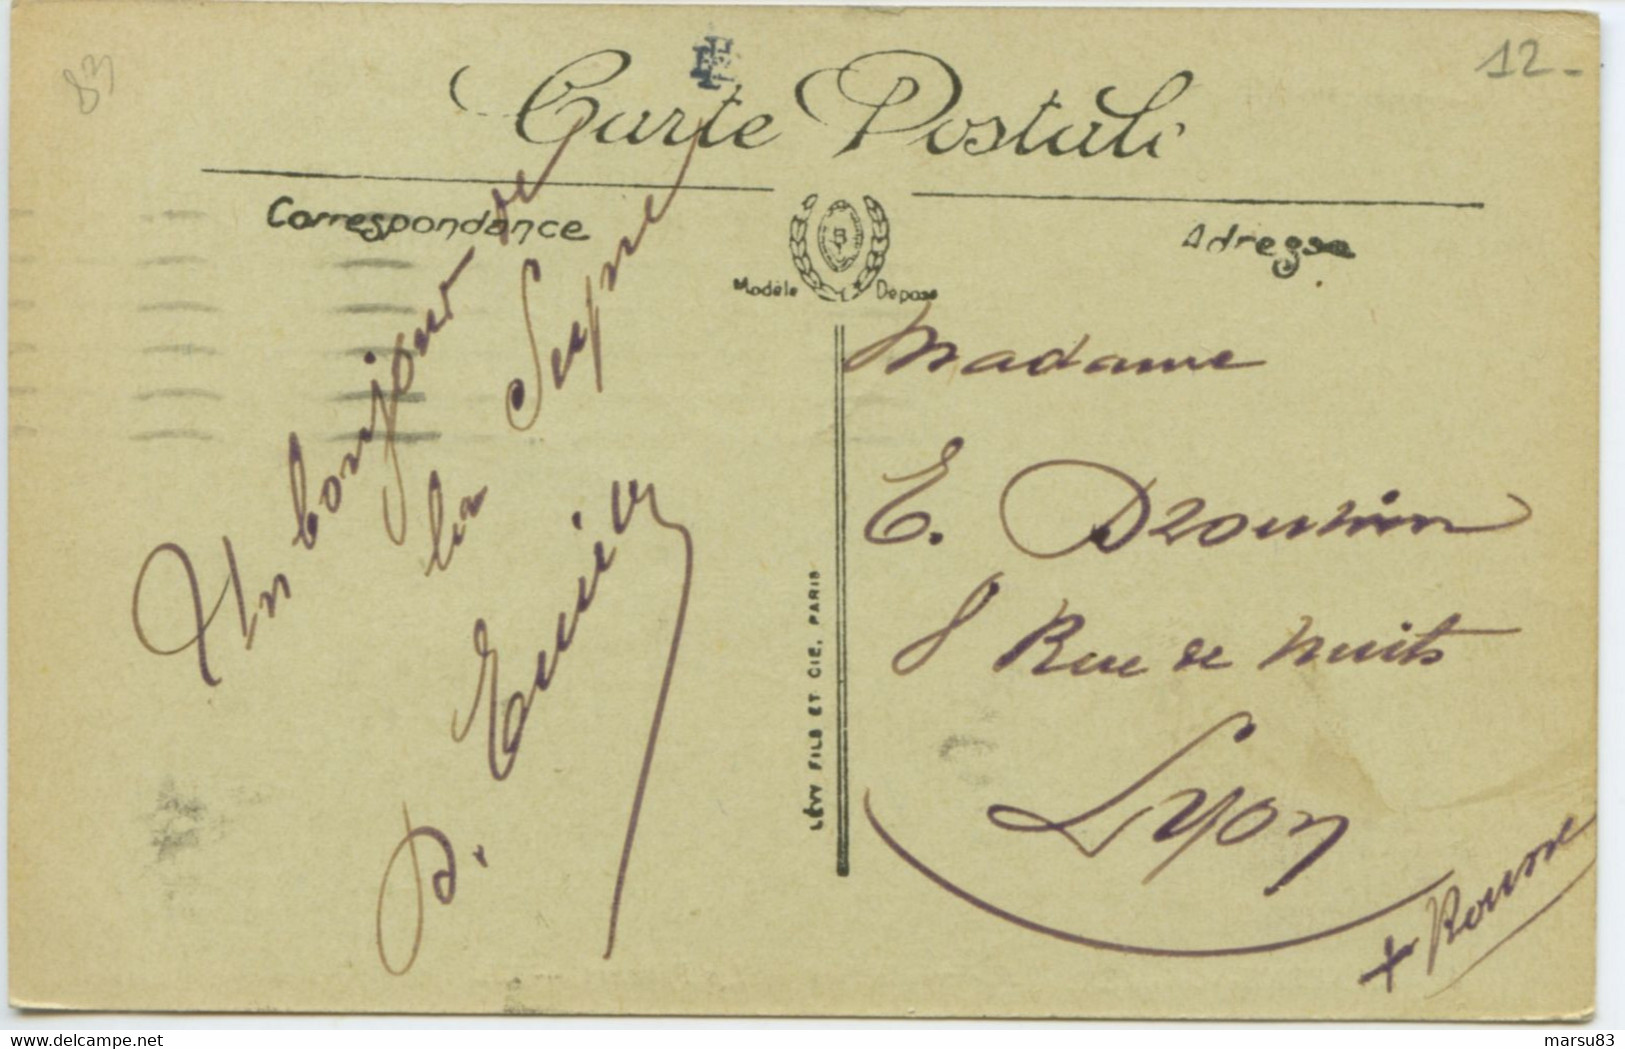 83
12-
Carte Postale
Correspondance
Adresse
Modèle Déposé
Un bonjour de
la Seyne
D.
LÉVY FILS ET CIE, PARIS
Madame
E. Drouvin
8 Rue de Nuits
Lyon
+ Rousse
delcampe.net
marsu83